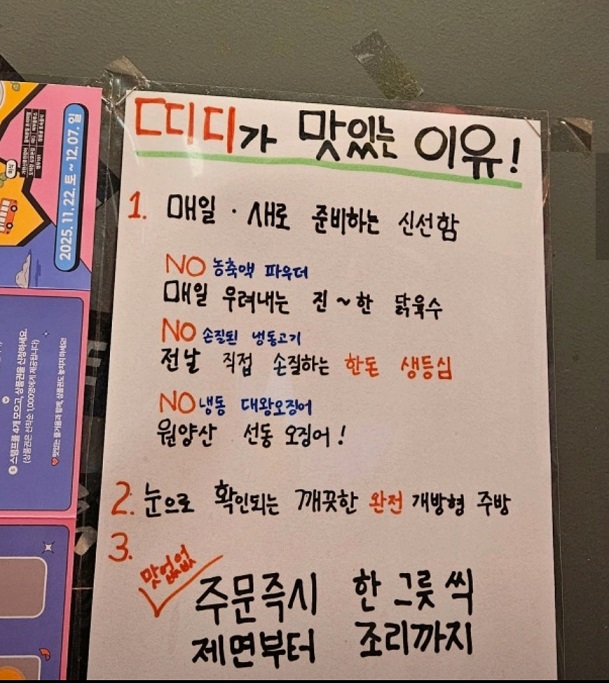 띠디가 맛있는 이유!
1. 매일 · 새로 준비하는 신선함
NO 농축액 파우더
매일 우려내는 진~한 닭육수
NO 손질된 냉동고기
전날 직접 손질하는 한돈 생등심
NO 냉동 대왕오징어
원양산 선동 오징어!
2. 눈으로 확인되는 깨끗한 완전 개방형 주방
3.
맛없없
주문즉시 한 그릇 씩
제면부터 조리까지
2025. 11. 22. 토 ~ 12. 07. 일
스탬프를 4개 모으고, 상품권을 신청하세요.
(상품권은 선착순 1,000명에게 제공됩니다)
맛있는 즐거움과 함께, 상품권도 놓치지 마세요!